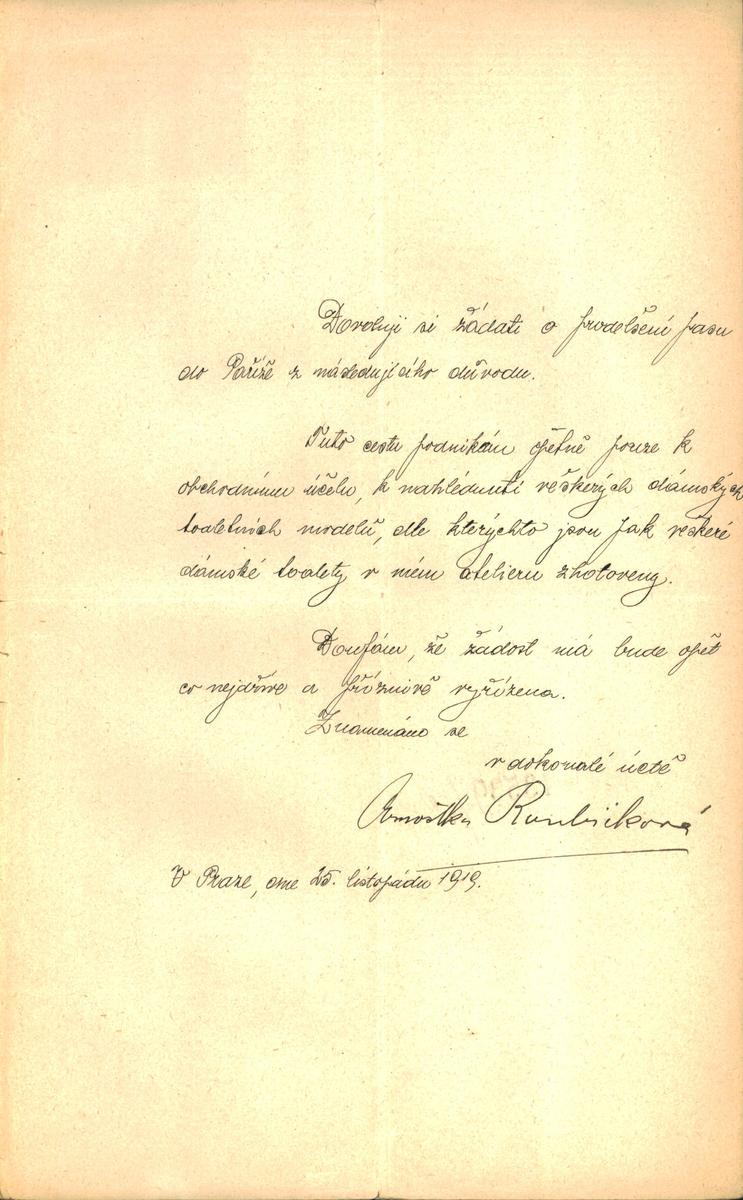 Dovoluji si žádati o prodelšení pasu
do Paříže z následujícího důvodu.
Tuto cestu podnikám opětně pouze k
obchodnímu účelu, k nahlédnutí veškerých dámských
toaletních modelů, dle kterýchto jsou jak veškeré
dámské toalety v mém atelieru zhotoveny.
Doufám, že žádost má bude opět
co nejdříve a příznivě vyřízena.
Znamenáno se
v dokonalé úctě
Arnoštka Roubíčková
V Praze, dne 25. listopádu 1919.